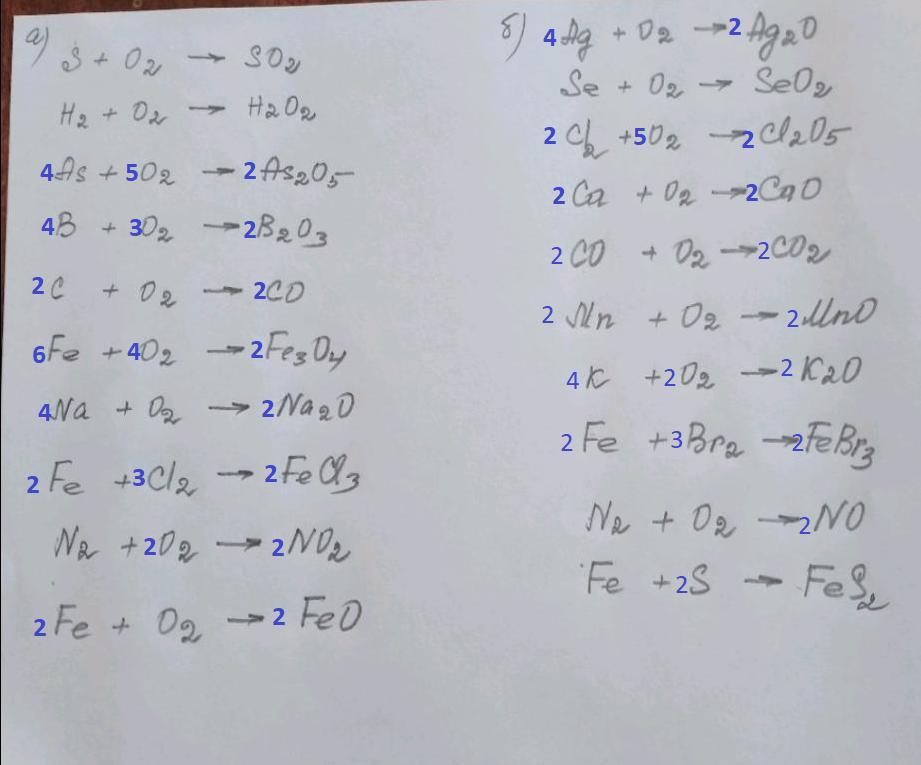 а)
S + O₂ → SO₂
H₂ + O₂ → H₂O₂
4As + 5O₂ → 2As₂O₅
4B + 3O₂ → 2B₂O₃
2C + O₂ → 2CO
6Fe + 4O₂ → 2Fe₃O₄
4Na + O₂ → 2Na₂O
2Fe + 3Cl₂ → 2FeCl₃
N₂ + 2O₂ → 2NO₂
2Fe + O₂ → 2FeO
б)
4Ag + O₂ → 2Ag₂O
Se + O₂ → SeO₂
2Cl₂ + 5O₂ → 2Cl₂O₅
2Ca + O₂ → 2CaO
2CO + O₂ → 2CO₂
2Mn + O₂ → 2MnO
4K + 2O₂ → 2K₂O
2Fe + 3Br₂ → 2FeBr₃
N₂ + O₂ → 2NO
Fe + 2S → FeS₂